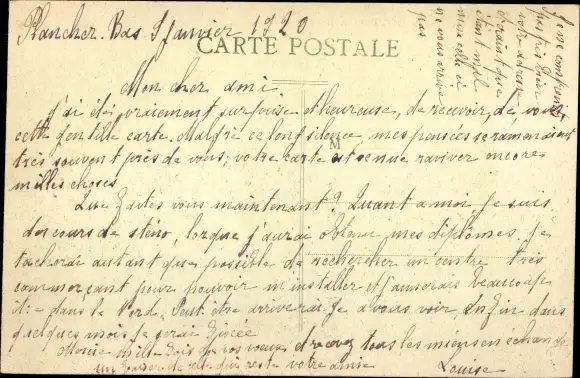 Plancher-Bas 5 Janvier 1920
CARTE POSTALE
Je ne comprends
pas très bien
votre adresse
craint que
étant mal
mise celle ci
ne vous arrive
pas
Mon cher ami
J'ai été vraiment surprise et heureuse, de recevoir, de vous
cette gentille carte. Malgré ce mes pensées se ramenaient
très souvent près de vous; votre carte est venue raviver encore
milles choses
M
Que faites vous maintenant? Quant a moi, je suis
des cours de sténo, lorsque j'aurai obtenu mes diplômes, je
tacherai autant que possible de rechercher un centre très
commerçant pour pouvoir m'installer et j'aimerais beaucoup
être dans le Nord. Peut être arriverai je a vous voir, Enfin dans
quelques mois je serai fixée
Merci mille fois de vos voeux et recevez tous les miens en échange
un baiser de celle qui reste votre amie Louise